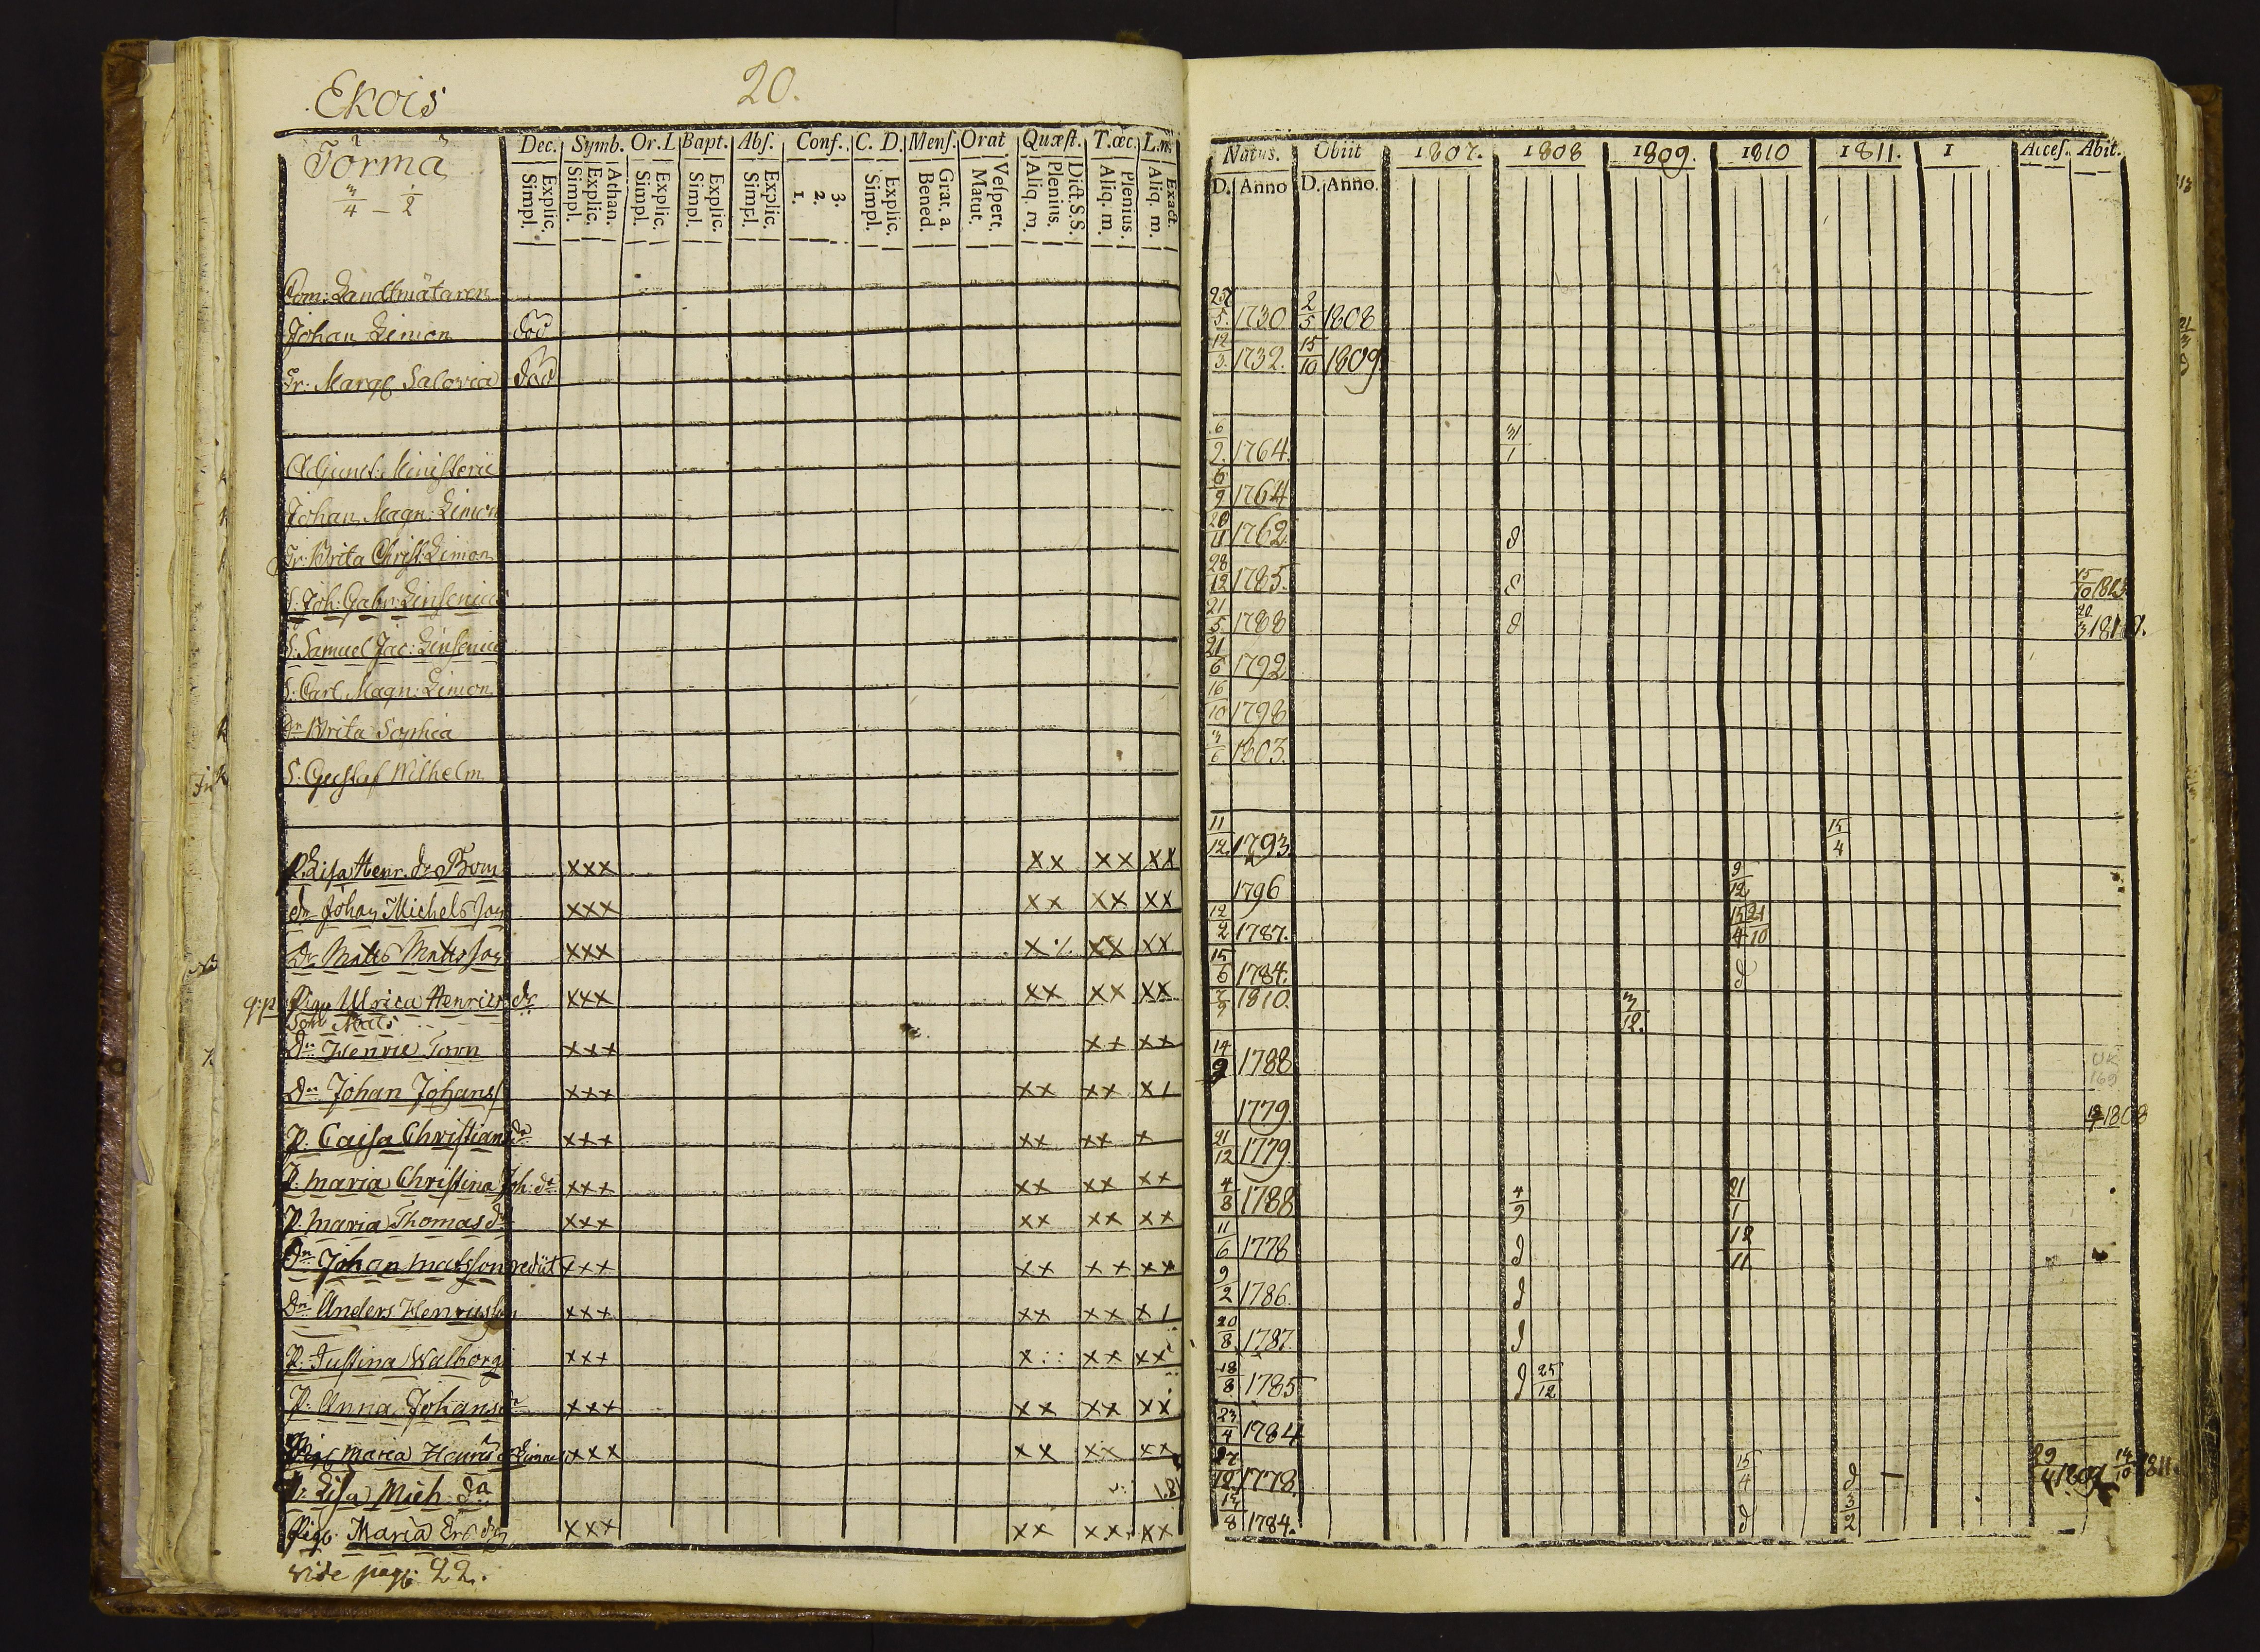 Ekois
20.
Torma
3/4 - 1/2
Dec. Symb. Or. L Bapt. Abs. Conf. C. D. Mens. Orat Quæst. T. œc. L. n.
Explic. Simpl. Athan. Explic. Simpl. Explic. Simpl. Explic. Simpl. Explic. Simpl. 3. 2. 1. Explic. Simpl. Grat. a. Bened. Vespert. Matut. Dict. S.S. Plenius. Aliq. m. Plenius. Aliq. m. Exact. Aliq. m.
Com: Landtmätaren
Johan Limon död
Fr: Marg Saloria död
Adjunct: Ministerii
Johan Magn: Limon
Fr: Brita Christ: Limon
S: Joh: Gabr: Linsenius
S: Samuel Jac: Linsenius
S: Carl Magn: Limon
Dr Brita Sophia
S: Gustaf Wilhelm
P. Lisa Henr. dr Bom xxx xx xx xx
dr Johan Michelsson xxx xx xx xx
Dr Matts Mattsson xxx xx xx
Pig. Ulrica Henrics dr xxx xx xx xx
Son Mats
Dn Henric Torn xxx xx xx
Dn Johan Johanss xxx xx xx x
P. Caisa Christians dr xxx xx xx x
P. Maria Christina Joh: dr xxx xx xx xx
P. Maria Thomas dr xxx xx xx xx
Dn Johan Matsson rediit xxx xx xx xx
Dn Anders Henricsson xxx xx xx x
P. Justina Walborg xxx x xx xx
P. Anna Johans dr xxx xx xx xx
Pig Maria Henrics dr Limon xxx xx xx xx
Lisa Mich: dr
Pig. Maria Er: dr xxx xx xx xx
vide pag: 22.
Natus. Obiit 1807. 1808 1809. 1810 1811. 1 Acces. Abit.
D. Anno D. Anno.
27/5. 1730 2/5 1808
12/3. 1732. 15/10 1809.
6/9. 1764. 31/1
6/9 1764
20/11 1762 d
28/12 1785.
15/10
21/5 1788 d
20/3
21/6 1792
16/10 1798
3/6 1803.
11/12. 1793. 15/4
1796 9/12
12/2 1787. 15/4 21/10
15/6 1784. d
1810. 3/12.
14/9 1788
UK
169
1779. 1808
21/12 1779.
4/8 1788 4/9 21/1
11/6 1778 d 18/11
9/2 1786. d
20/8 1787. d
18/8 1785 d 25/12
23/4 1784
27/12 1778. 15/4 d 14/10 1811.
13/8 1784. d 3/2